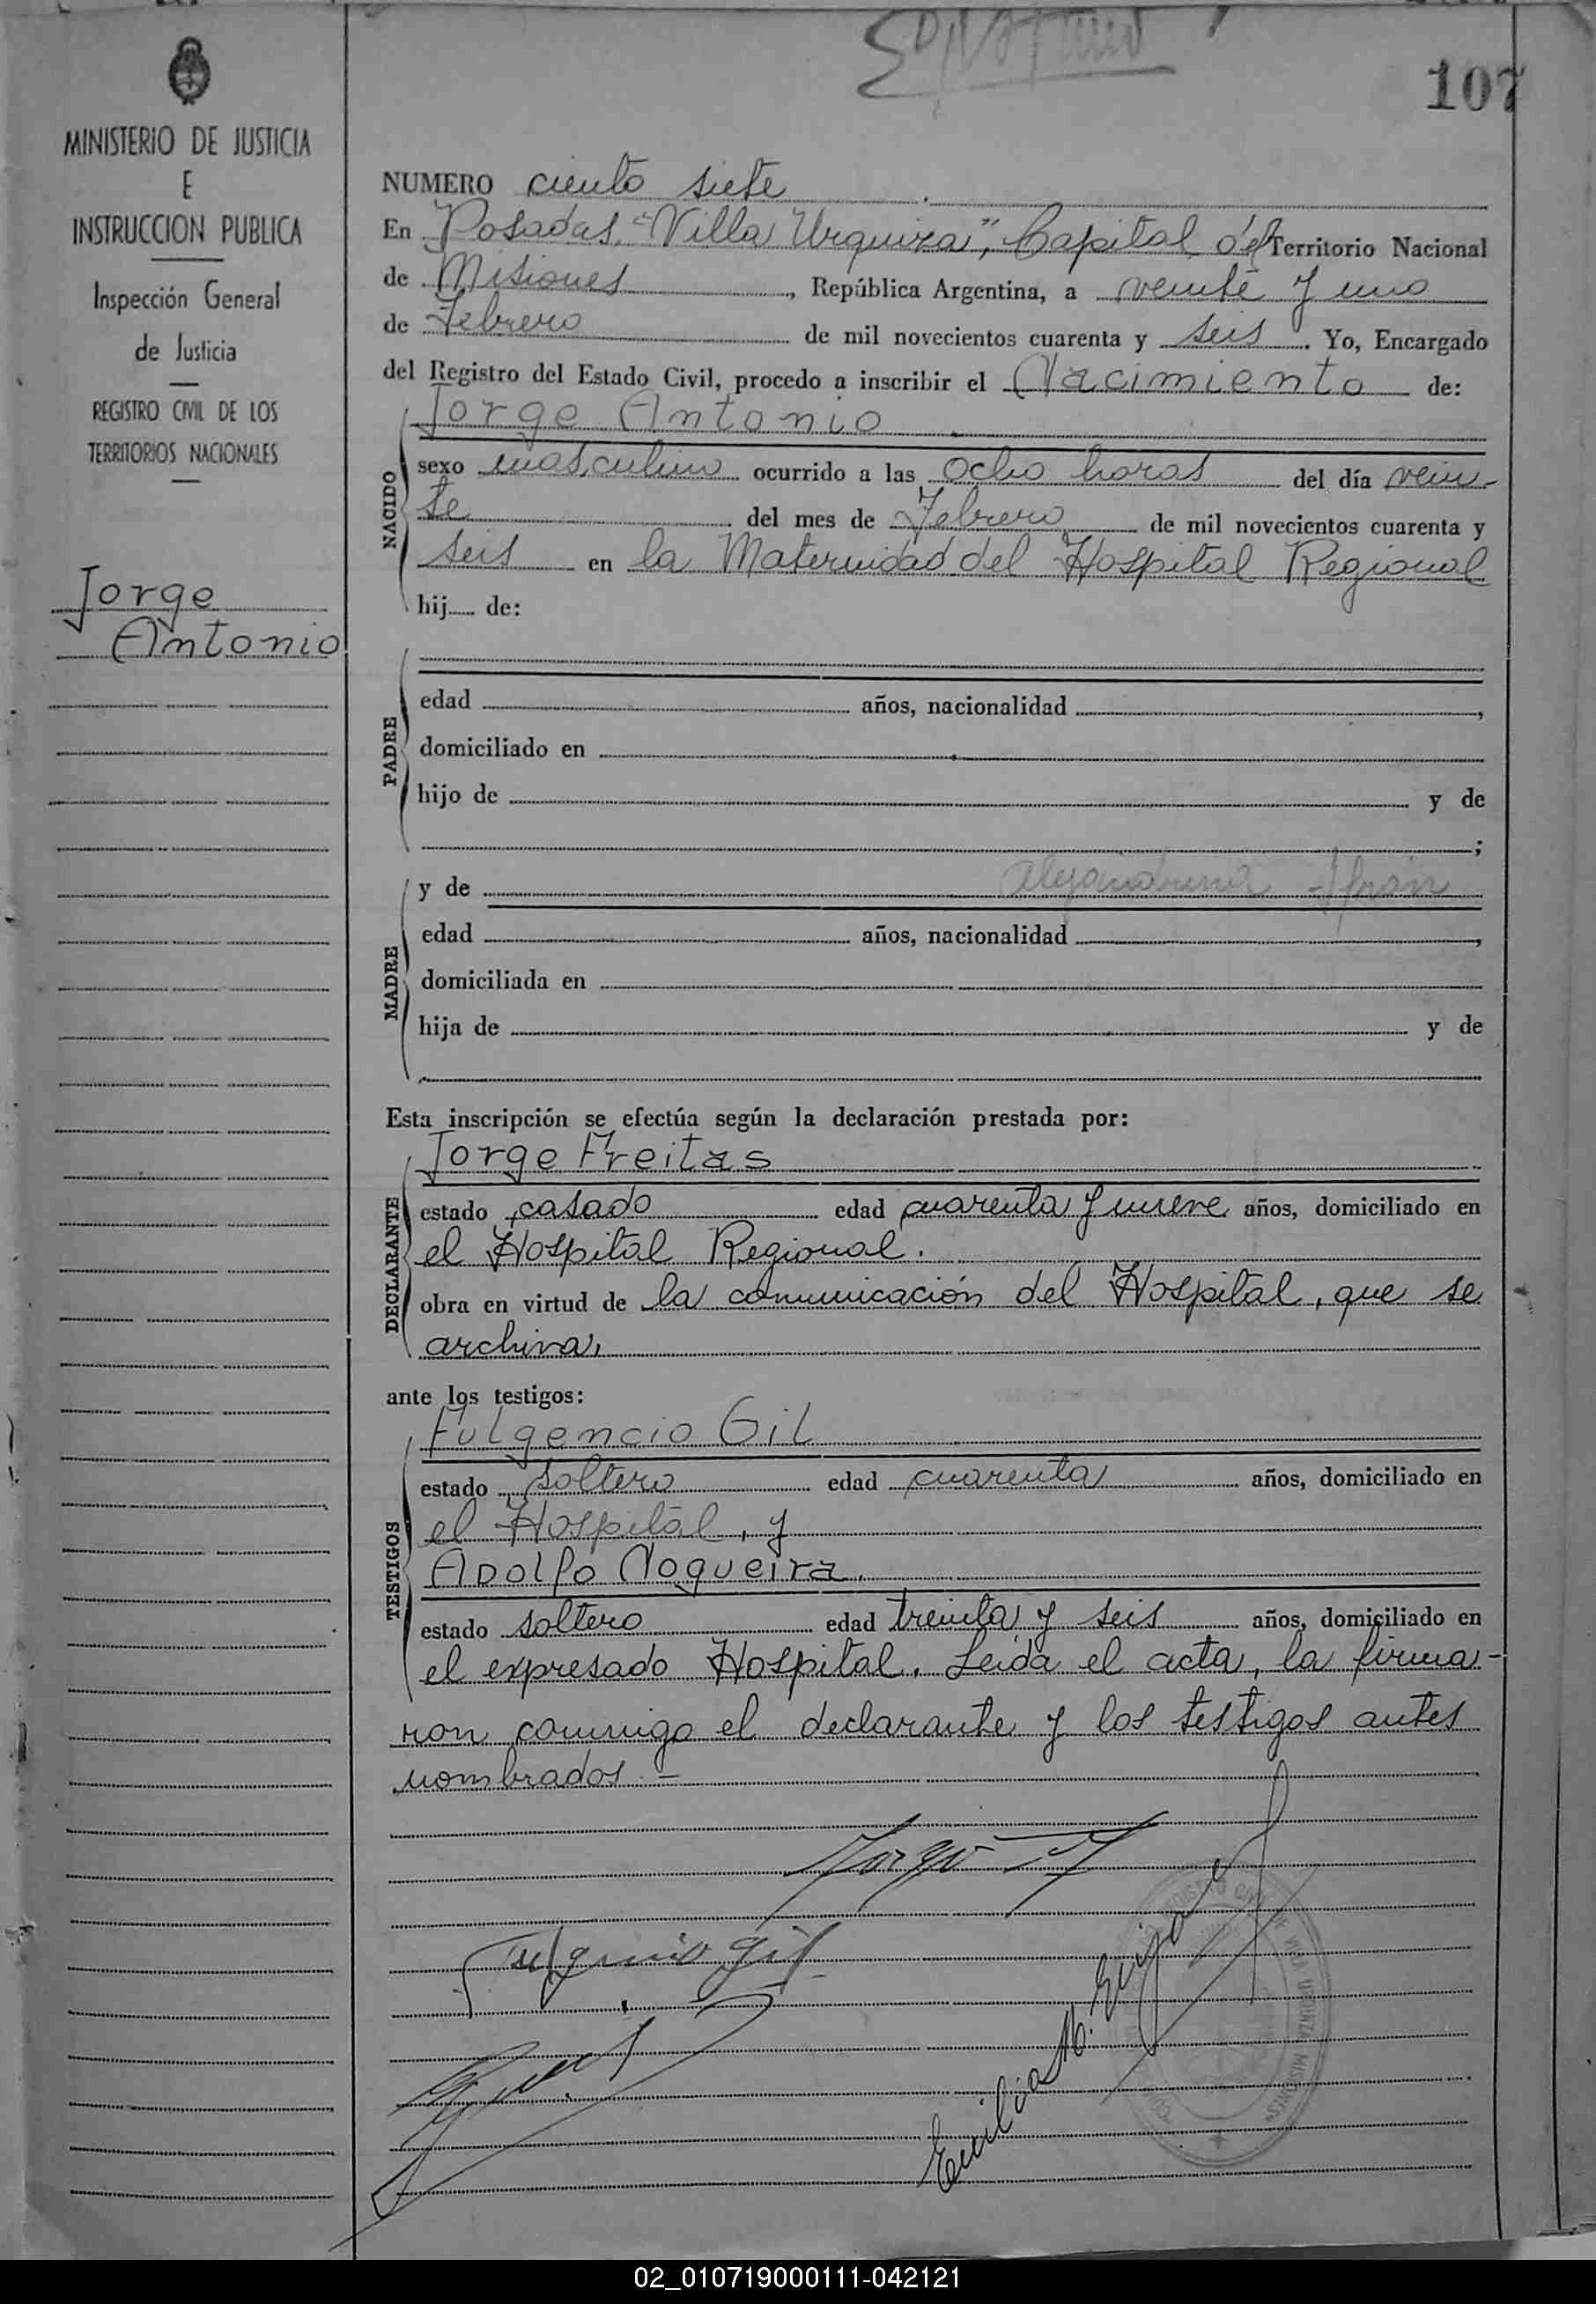 107
MINISTERIO DE JUSTICIA
E
INSTRUCCION PUBLICA
Inspección General
de Justicia
REGISTRO CIVIL DE LOS
TERRITORIOS NACIONALES
Jorge
Antonio
NUMERO ciento siete
En Posadas, "Villa Urquiza", Capital del Territorio Nacional
de Misiones, República Argentina, a veinte y uno
de Febrero de mil novecientos cuarenta y seis. Yo, Encargado
del Registro del Estado Civil, procedo a inscribir el Nacimiento de:
Jorge Antonio
NACIDO
sexo masculino ocurrido a las ocho horas del día vein-
te del mes de Febrero de mil novecientos cuarenta y
seis en la Maternidad del Hospital Regional
hij de:
PADRE
edad años, nacionalidad ,
domiciliado en
hijo de y de
;
MADRE
y de Alejandrina
edad años, nacionalidad ,
domiciliada en
hija de y de
Esta inscripción se efectúa según la declaración prestada por:
Jorge Freitas
DECLARANTE
estado casado edad cuarenta y nueve años, domiciliado en
el Hospital Regional.
obra en virtud de la comunicación del Hospital, que se
archiva,
ante los testigos:
Fulgencio Gil
TESTIGOS
estado soltero edad cuarenta años, domiciliado en
el Hospital, y
Adolfo Nogueira.
estado soltero edad treinta y seis años, domiciliado en
el expresado Hospital. Leida el acta, la firma-
ron conmigo el declarante y los testigos antes
nombrados.-
Jorge
Fulgencio Gil
Emilio
REGISTRO CIVIL VILLA URQUIZA MISIONES
02_010719000111-042121